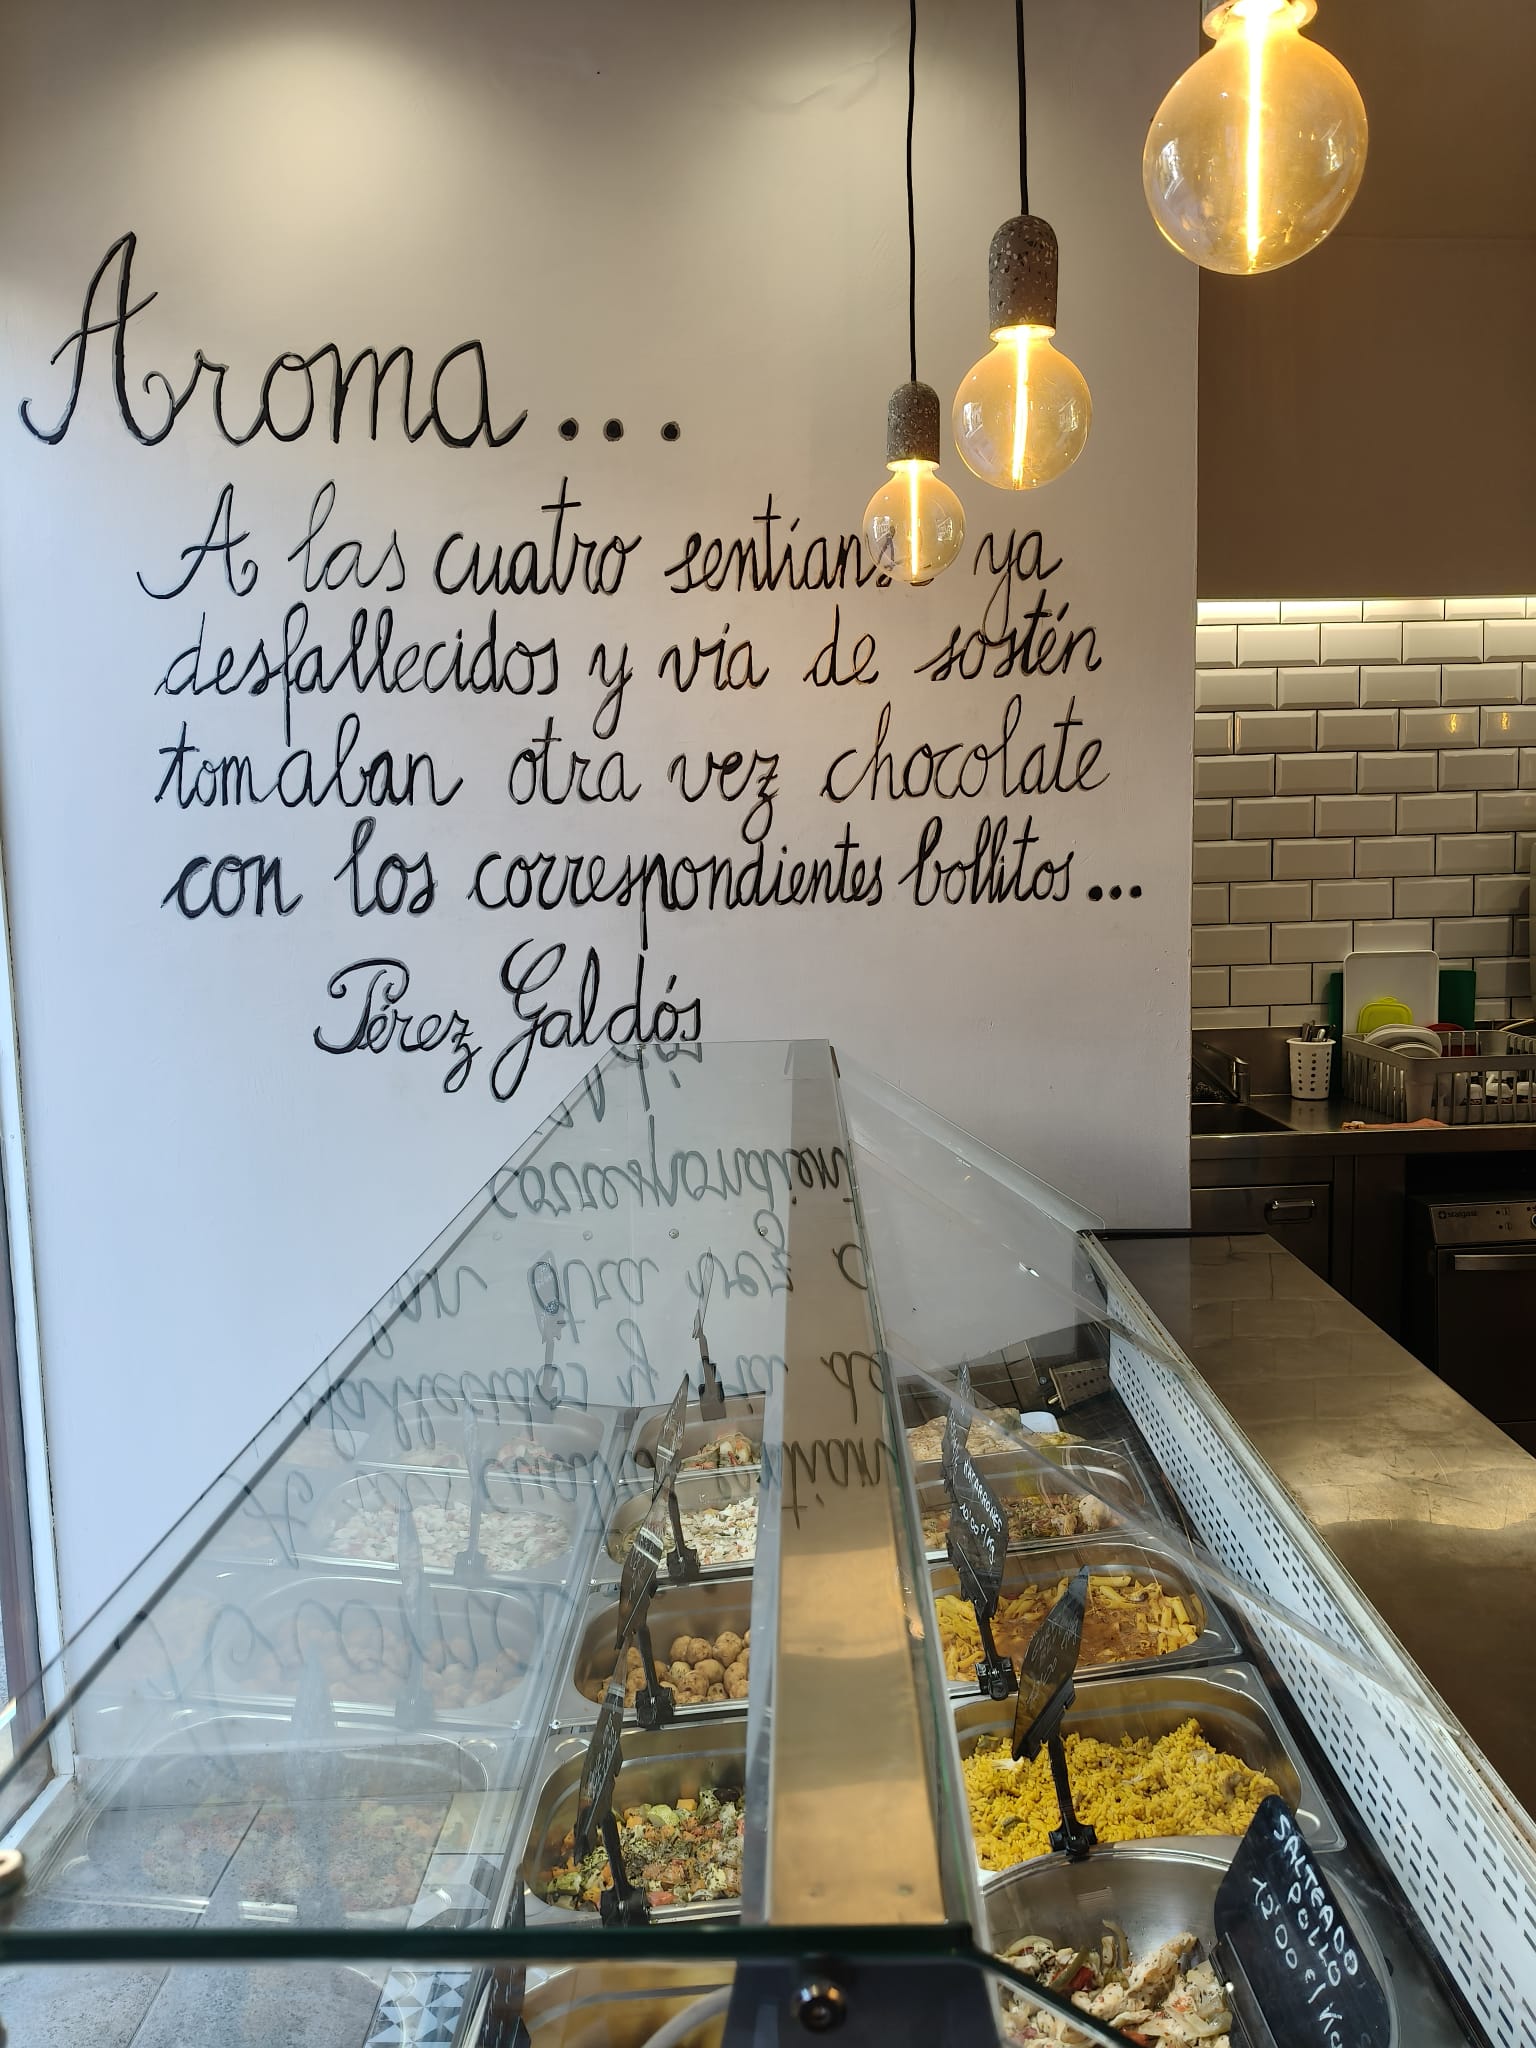 Aroma...
A las cuatro sentían ya
desfallecidos y vía de sostén
tomaban otra vez chocolate
con los correspondientes bollitos...
Pérez Galdós
MACARRONES
10'00 €/Kg
SALTEADO
POLLO
12'00 €/KG
stalgast